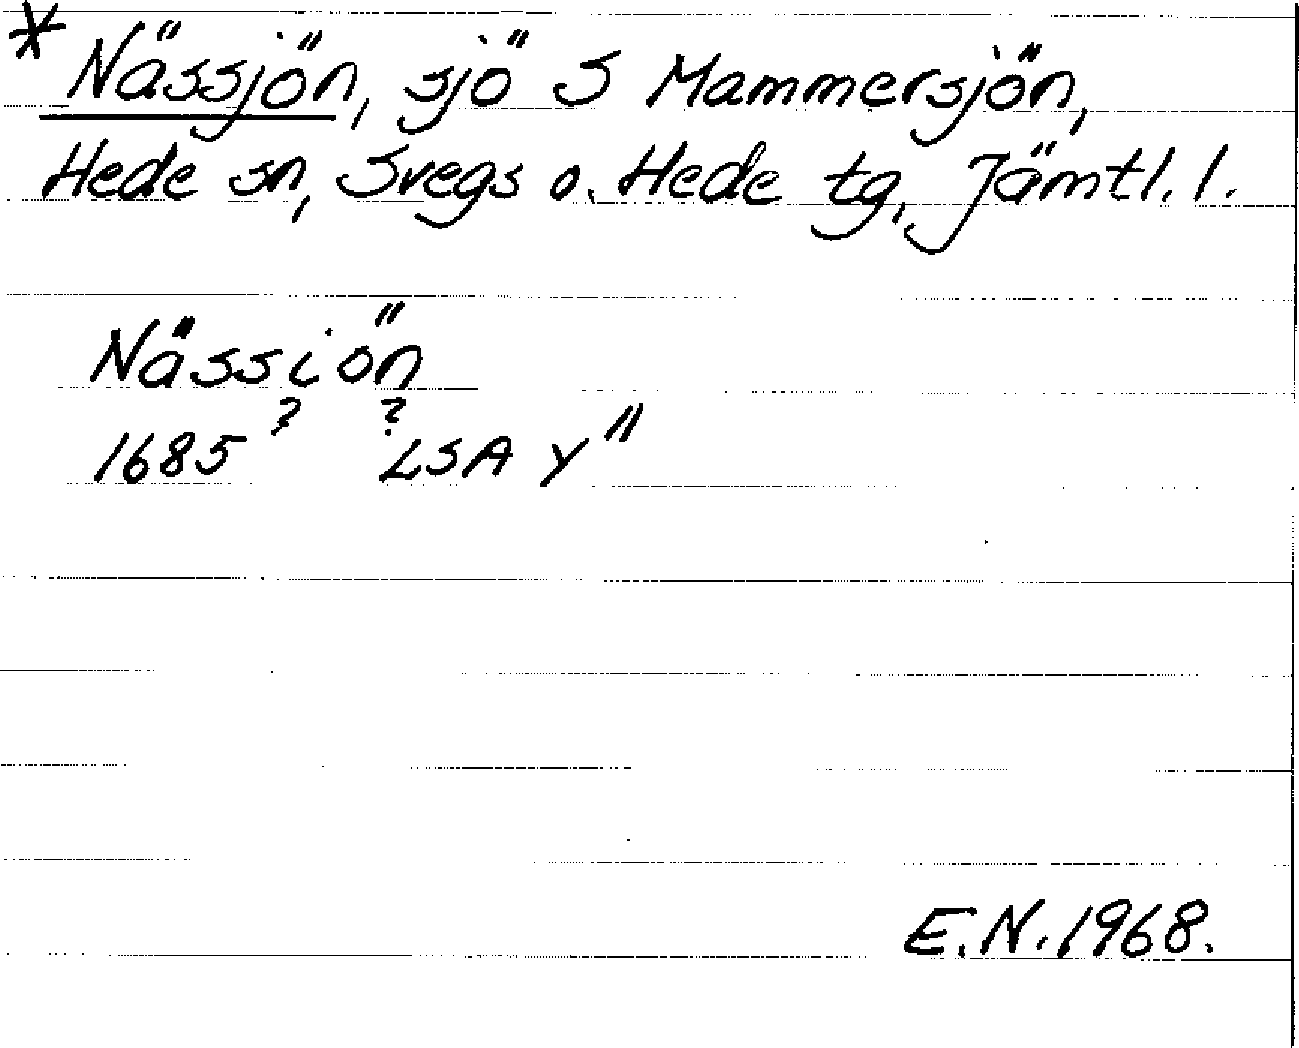 * Nässjön, sjö S Mammersjön,
Hede sn, Svegs o. Hede tg, Jämtl. l.
Nässiön
? ?
1685 LSA Y"
E.N. 1968.